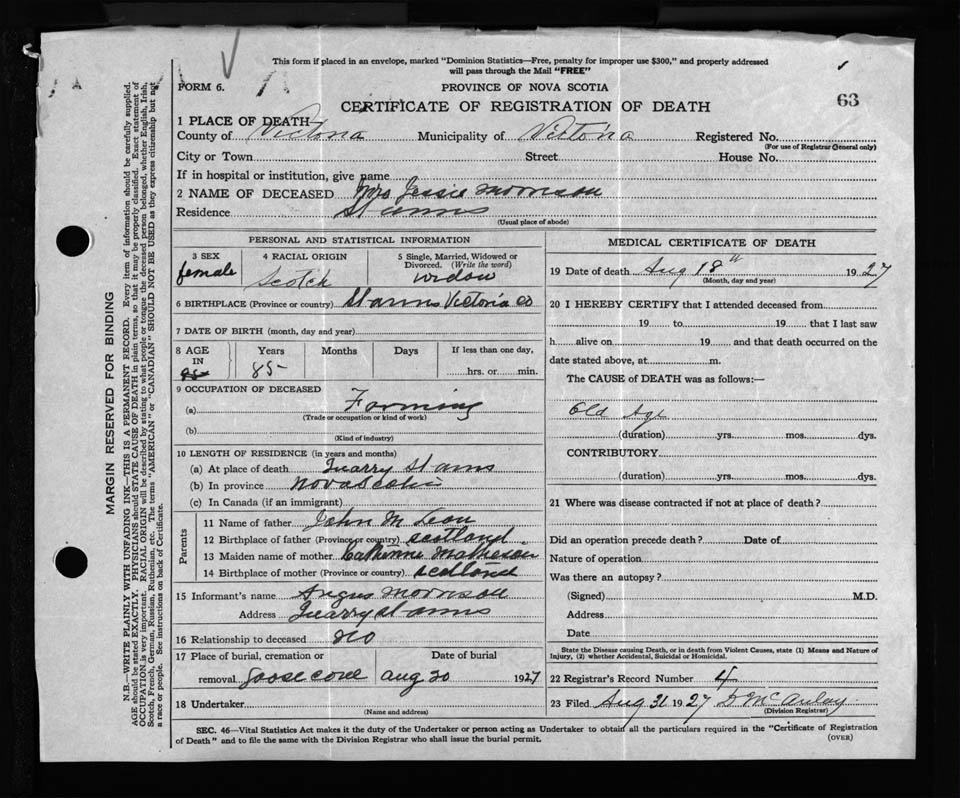 This form if placed in an envelope, marked "Dominion Statistics—Free, penalty for improper use $300," and properly addressed
will pass through the Mail "FREE"
FORM 6.
PROVINCE OF NOVA SCOTIA
CERTIFICATE OF REGISTRATION OF DEATH
63
1 PLACE OF DEATH
County of Victoria Municipality of Victoria Registered No.
(For use of Registrar General only)
City or Town Street House No.
If in hospital or institution, give name
2 NAME OF DECEASED Mrs Jessie Morrison
Residence St anns
(Usual place of abode)
PERSONAL AND STATISTICAL INFORMATION
3 SEX 4 RACIAL ORIGIN 5 Single, Married, Widowed or
Divorced. (Write the word)
female Scotch widow
6 BIRTHPLACE (Province or country) St anns Victoria co
7 DATE OF BIRTH (month, day and year)
8 AGE Years Months Days If less than one day,
IN 85 hrs. or min.
9 OCCUPATION OF DECEASED
(a) Farming
(Trade or occupation or kind of work)
(b)
(Kind of industry)
10 LENGTH OF RESIDENCE (in years and months)
(a) At place of death Quarry St anns
(b) In province Nova Scotia
(c) In Canada (if an immigrant)
Parents
11 Name of father John M Leou
12 Birthplace of father (Province or country) scotland
13 Maiden name of mother Catherine Matheson
14 Birthplace of mother (Province or country) scotland
15 Informant's name Angus Morrison
Address Quarry st anns
16 Relationship to deceased
17 Place of burial, cremation or Date of burial
removal Goose cove aug 20 1927
18 Undertaker
(Name and address)
MEDICAL CERTIFICATE OF DEATH
19 Date of death Aug 18th 1927
(Month, day and year)
20 I HEREBY CERTIFY that I attended deceased from
19 to 19 that I last saw
h alive on 19 and that death occurred on the
date stated above, at m.
The CAUSE of DEATH was as follows:—
Old Age
(duration) yrs. mos. dys.
CONTRIBUTORY
(duration) yrs. mos. dys.
21 Where was disease contracted if not at place of death?
Did an operation precede death? Date of
Nature of operation
Was there an autopsy?
(Signed) M.D.
Address
Date
State the Disease causing Death, or in death from Violent Causes, state (1) Means and Nature of
Injury, (2) whether Accidental, Suicidal or Homicidal.
22 Registrar's Record Number 4
23 Filed Aug 31 1927 D McAulay
(Division Registrar)
SEC. 46—Vital Statistics Act makes it the duty of the Undertaker or person acting as Undertaker to obtain all the particulars required in the "Certificate of Registration
of Death" and to file the same with the Division Registrar who shall issue the burial permit.
(OVER)
MARGIN RESERVED FOR BINDING
N.B.—WRITE PLAINLY WITH UNFADING INK—THIS IS A PERMANENT RECORD. Every item of information should be carefully supplied.
AGE should be stated EXACTLY. PHYSICIANS should STATE CAUSE OF DEATH in plain terms, so that it may be properly classified. Exact statement of
OCCUPATION is very important. RACIAL ORIGIN will be described by stating to what people or tongue the deceased person belonged, whether English, Irish,
Scotch, French, German, Russian, Ruthenian, etc. The terms "AMERICAN" or "CANADIAN" SHOULD NOT BE USED as they express citizenship but not
a race or people. See instructions on back of Certificate.